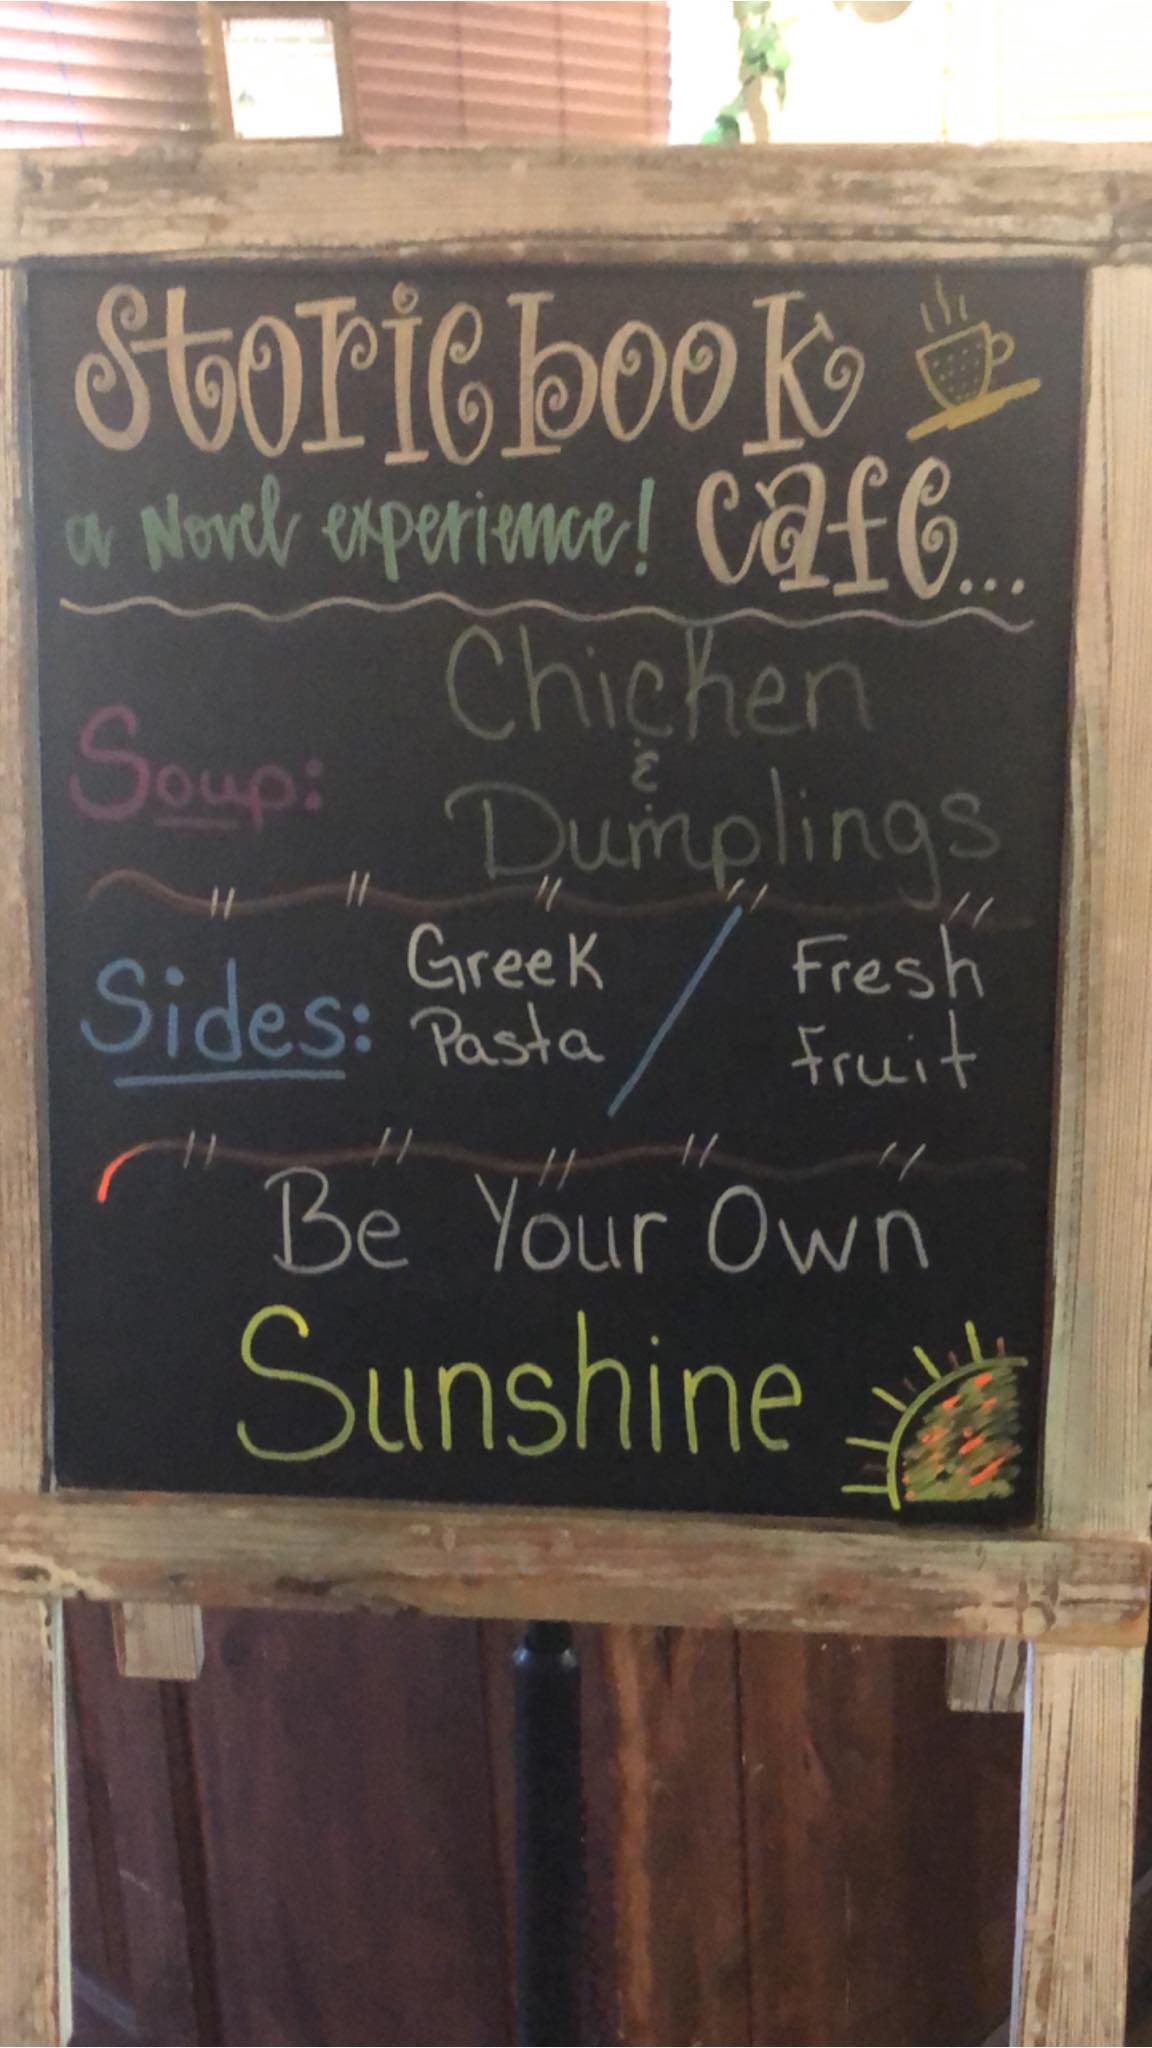 Storiebook
a Novel experience! Cafe...
Chicken
&
Soup:
Dumplings
Sides: Greek Pasta / Fresh Fruit
Be Your Own
Sunshine